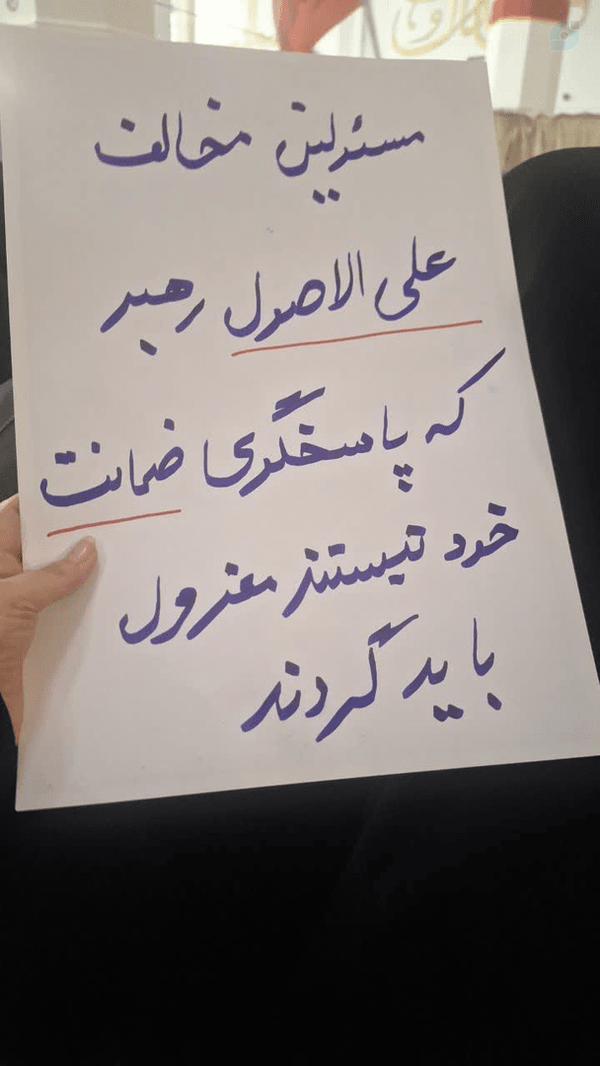 مسئولین مخالف
علی الاصول رهبر
که پاسخگوی ضمانت
خود نیستند معزول
باید گردند